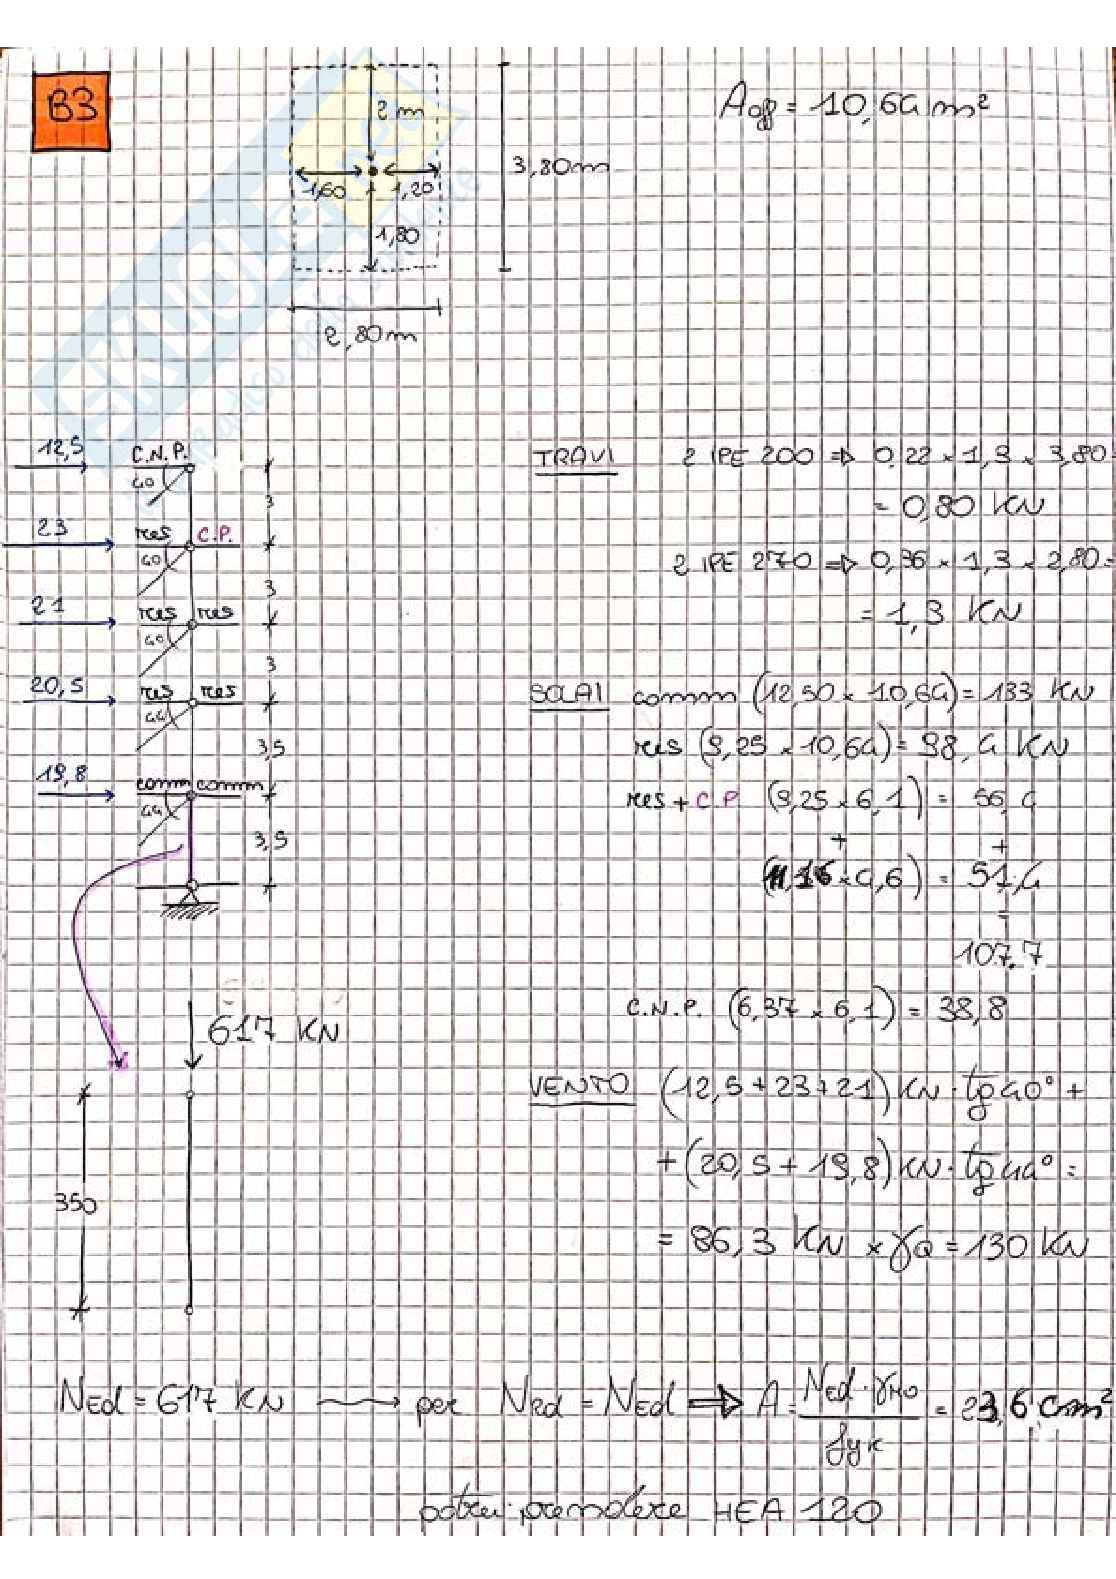 B3
2 m
A aff = 10,64 m²
3,80 m
1,60 1,20
1,80
2,80 m
12,5 C.N.P.
40
3
23 res C.P.
40
3
21 res res
40
3
20,5 res res
44
3,5
19,8 comm comm
44
3,5
TRAVI 2 IPE 200 ⇒ 0,22 × 1,3 × 3,80 =
= 0,80 KN
2 IPE 270 ⇒ 0,36 × 1,3 × 2,80 =
= 1,3 KN
SOLAI comm (12,50 × 10,64) = 133 KN
res (9,25 × 10,64) = 98,4 KN
res + C.P. (9,25 × 6,1) = 56,4
+ +
(11,16 × 4,6) = 51,4
=
107,7
C.N.P. (6,37 × 6,1) = 38,8
617 KN
350
VENTO (12,5 + 23 + 21) KN · tg 40° +
+ (20,5 + 19,8) KN · tg 44° =
= 86,3 KN × γQ = 130 KN
NEd = 617 KN → per NRd = NEd ⇒ A = NEd · γM0 / fyk = 23,6 cm²
potrei prendere HEA 120